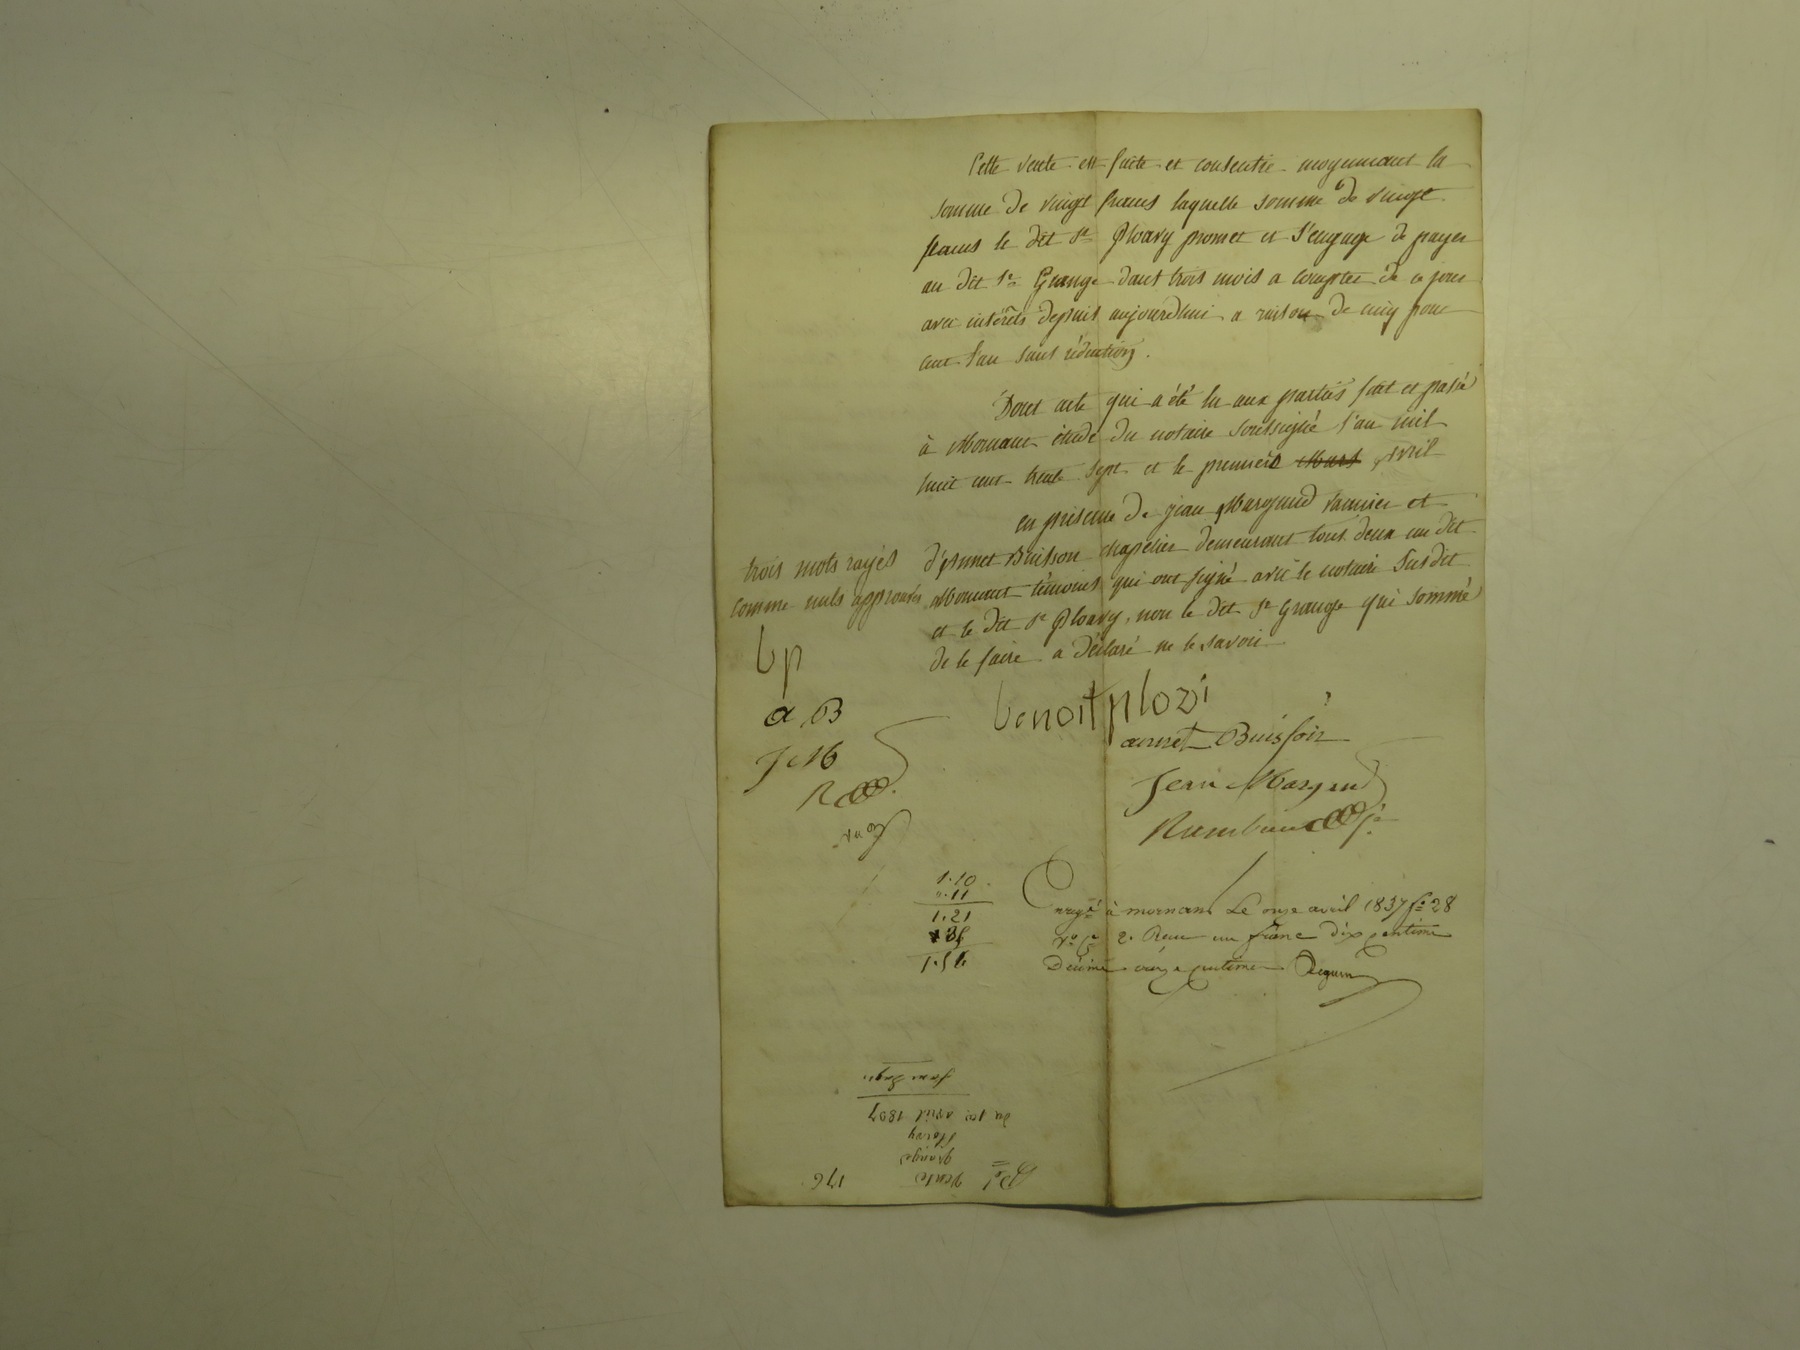 Cette vente est faite et consentie moyennant la
somme de vingt francs laquelle somme de vingt
francs le dit Sr Ploavy promet et s'engage de payer
au dit Sr Grange dant trois mois a compter de ce jour
avec intérêts depuis aujourd'hui a raison de cinq pour
cent l'an sans réduction.
Dont acte qui a été lu aux parties fait et passé
à Mornant étude du notaire soussigné l'an mil
huit cent trente sept et le premier Mars avril
en présence de jean Margand vannier et
d'annet Buisson chapelier demeurant tous deux au dit
Mornant témoins qui ont signé avec le notaire susdit
et le dit Sr Ploavy, non le dit Sr Grange qui sommé
de le faire a déclaré ne le savoir
trois mots rayés
comme nuls approuvés
bp
a B
J M
R
benoit plovi
annet Buisson
Jean Margan
1.10
".11
1.21
1.54
Enregé à mornant Le onze avril 1837 fo 28
vo Ce 2. Reçu un franc dix centimes
Décime onze centimes
176
Vente
grange
du 1er avril 1837